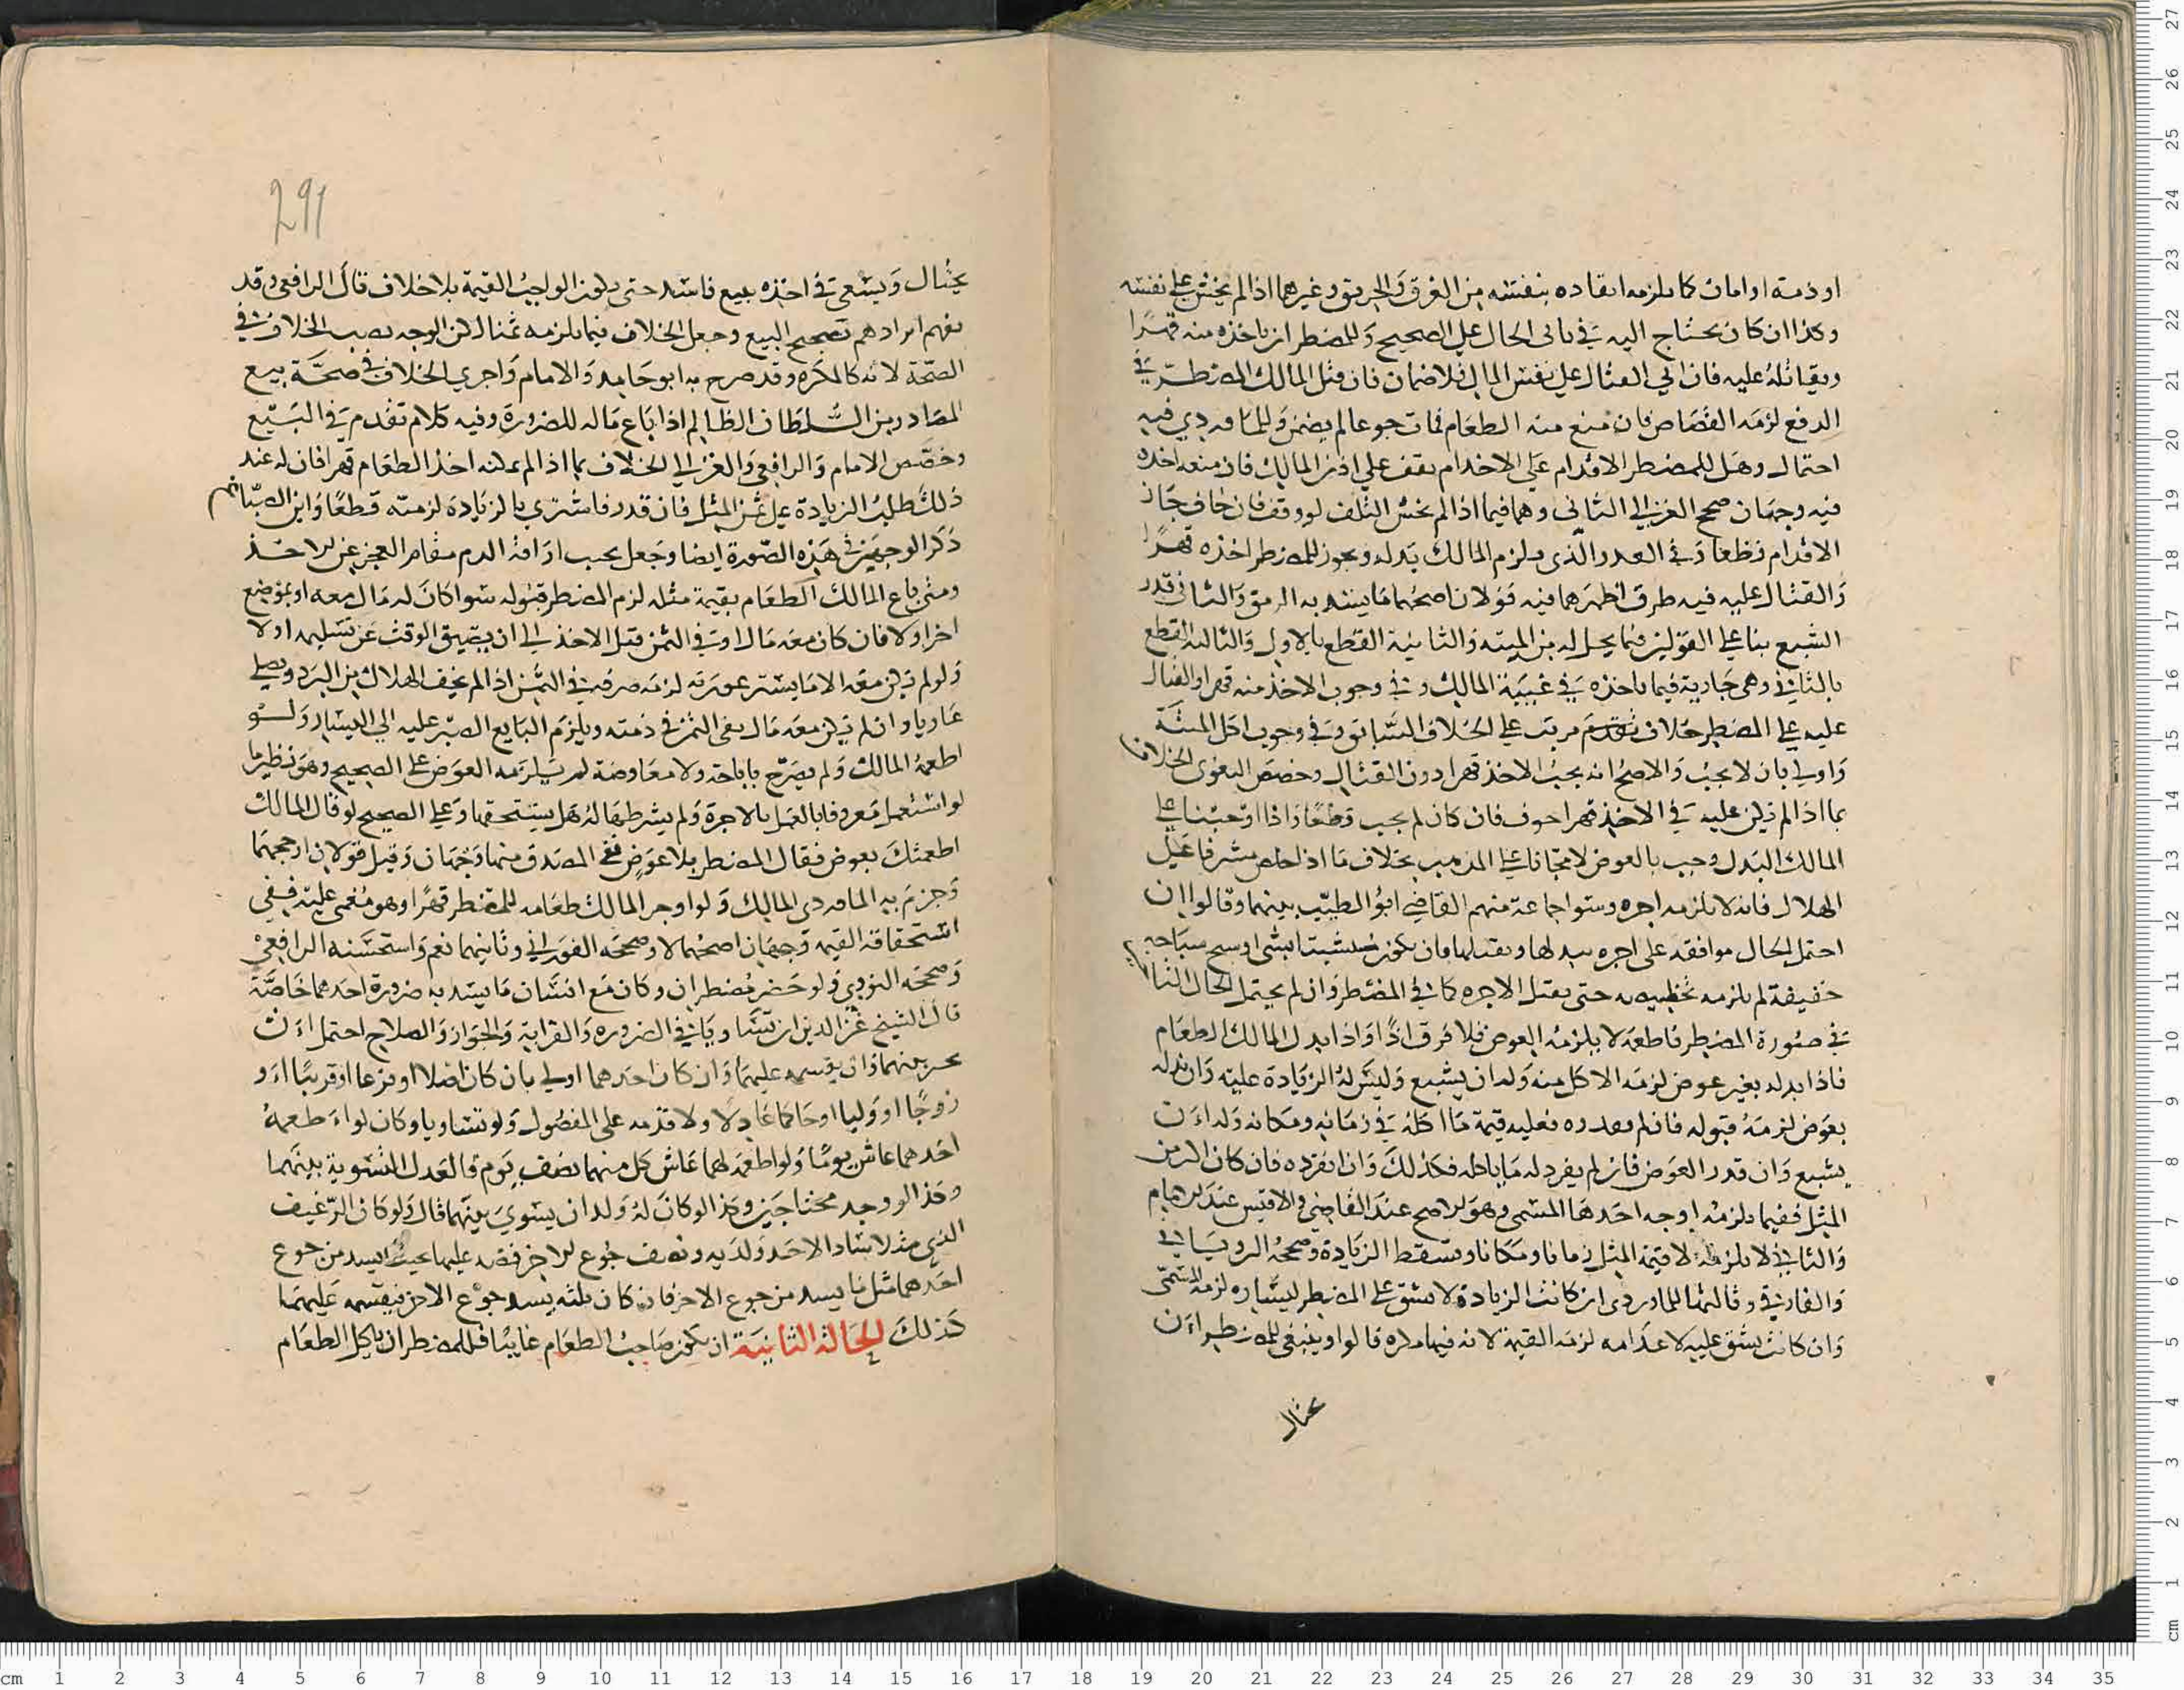 او ذمة او امان كما يلزمه انقاده بنفسه من الغرق والحريق وغيرهما اذا لم يخش على نفسه
وكذا ان كان يحتاج اليه في ثاني الحال على الصحيح وللمضطر ان ياخذه منه قهرا
ويقاتله عليه فان اتي القتال على نفس المال فلا ضمان فان قتل المالك المضطر في
الدفع لزمه القصاص فان منع منه الطعام فمات جوعا لم يضمن وللماوردي فيه
احتمال وهل للمضطر الاقدام على الاخد ام يقف على اذن المالك فان منعه اخذه
فيه وجهان صحح الغزالي الثاني وهما فيما اذا لم يخش التلف لو وقف فان خاف جاز
الاقدام قطعا وفي القدر الذي يلزم المالك بذله ويجوز للمضطر اخذه قهرا
والقتال عليه فيه طرق اظهرها فيه قولان اصحهما ما يسد به الرمق والثاني قدر
الشبع بنا على القولين فيما يحل له من الميتة والثانية القطع بالاول والثالثة القطع
بالثاني وهي جارية فيما ياخذه في غيبة المالك وفي وجوب الاخذ منه قهرا والقتال
عليه على المضطر خلاف تقدم مرتب على الخلاف السابق وفي وجوب اكل الميتة
واولي بان لا يجب والاصح انه يجب الاخذ قهرا دون القتال وخصص البغوي الخلاف
بما اذا لم يكن عليه في الاخذ قهرا خوف فان كان لم يجب قطعا واذا اوجبنا على
المالك البدل وجب بالعوض لا مجانا على المذهب بخلاف ما اذا خلص مشرفا على
الهلاك فانه لا يلزمه اجره وسوا جماعة منهم القاضي ابو الطيب بينهما وقالوا ان
احتمل الحال موافقه على اجره يبدلها ويقبلها فان يكون
خفيفة لم يلزمه تخليصه حتى يقبل الاجره كما في المضطر وان لم يحتمل الحال التاخير
في صورة المضطر فاطعمه لا يلزمه العوض فلا فرق اذا واذا بدل المالك الطعام
فاذا بدله بغير عوض لزمه الاكل منه وله ان يشبع وليس له الزيادة عليه وان بدله
بعوض لزمه قبوله فان لم يقدره فعليه قيمة ما اكله في زمانه ومكانه وله ان
يشبع وان قدر العوض فان لم يفرد له ما ياكله فكذلك وان افرده فان كان الثمن
المثل ففيما يلزمه اوجه احدها المسمى وهو الاصح عند القاضي والاقيس عند الامام
والثاني لا يلزمه الا قيمة المثل زمانا ومكانا وتسقط الزيادة وصححه الروياني
والفارقي وثالثها للماوردي ان كانت الزيادة لا تشق على المضطر ليساره لزمه المسمى
وان كانت تشق عليه لاعدامه لزمه القيمة لانه فيها مكره قالوا وينبغي للمضطر ان
يحتال
291
يحتال ويسعى في اخذه ببيع فاسد حتى يكون الواجب القيمة بلا خلاف قال الرافعي وقد
يفهم ايرادهم تصحيح البيع وجعل الخلاف فيما يلزمه ثمنا لكن الوجه نصب الخلاف في
الصحة لانه كالمكره وقد صرح به ابو حامد والامام واجري الخلاف في صحة بيع
المصادر من السلطان الظالم اذا باع ماله للضرورة وفيه كلام تقدم في البيع
وخصص الامام والرافعي والغزالي الخلاف بما اذا لم يمكنه اخذ الطعام قهرا فان له عند
ذلك طلب الزيادة على ثمن المثل فان قدر فاشتري بالزيادة لزمته قطعا وابن الصباغ
ذكر الوجهين في هذه الصورة ايضا وجعل يجب اراقة الدم مقام العجز عن الاخذ
ومتى باع المالك الطعام بقيمة مثله لزم المضطر قبوله سوا كان له مال معه او بموضع
اخر او لا فان كان معه مال اوفي الثمن قبل الاخذ الي ان يضيق الوقت عن تسليمه اولا
ولو لم يكن معه الا ما يستر عورته لزمه صرفه في الثمن اذا لم يخف الهلاك من البرد ويصلي
عاريا وان لم يكن معه مال بقي الثمن في ذمته ويلزم البايع الصبر عليه الى اليسار ولو
اطعمه المالك ولم يصرح باباحة ولا معاوضة لم يلزمه العوض على الصحيح وهو نظير ما
لو استعمل معروفا بالعمل بالاجرة ولم يشرطها له هل يستحقها وعلى الصحيح لو قال المالك
اطعمتك بعوض فقال المضطر بلا عوض ففي المصدق منهما وجهان وقيل قولان ارجحهما
وجزم به الماوردي المالك ولو اوجر المالك طعامه للمضطر قهرا او وهو مغمى عليه ففي
استحقاقه القيمة وجهان اصحهما لا وصححه الفوراني وثانيهما نعم واستحسنه الرافعي
وصححه النووي ولو حضر مضطران وكان مع انسان ما يسد به ضرورة احدهما خاصة
قال الشيخ عز الدين ان تساويا في الضروره والقرابة والجوار والصلاح احتمل ان
يتخير بينهما وان يقسمه عليهما وان كان احدهما اولي بان كان اصلا او فرعا او قريبا او
زوجا او وليا او حاكما عادلا ولا قدمه على المفضول ولو تساويا وكان لو اطعمه
احدهما عاش يوما ولو اطعمه لهما عاش كل منهما نصف يوم فالعدل التسوية بينهما
وكذا لو وجد محتاجين وكذا لو كان له ولدان يسوي بينهما قال ولو كان الرغيف
احدهما مثل ما يسد من جوع الاخر فان كان ثلثه يسد جوع الاخر فيقسمه عليهما
كذلك الحالة الثانية ان يكون صاحب الطعام غايبا فللمضطر ان ياكل الطعام